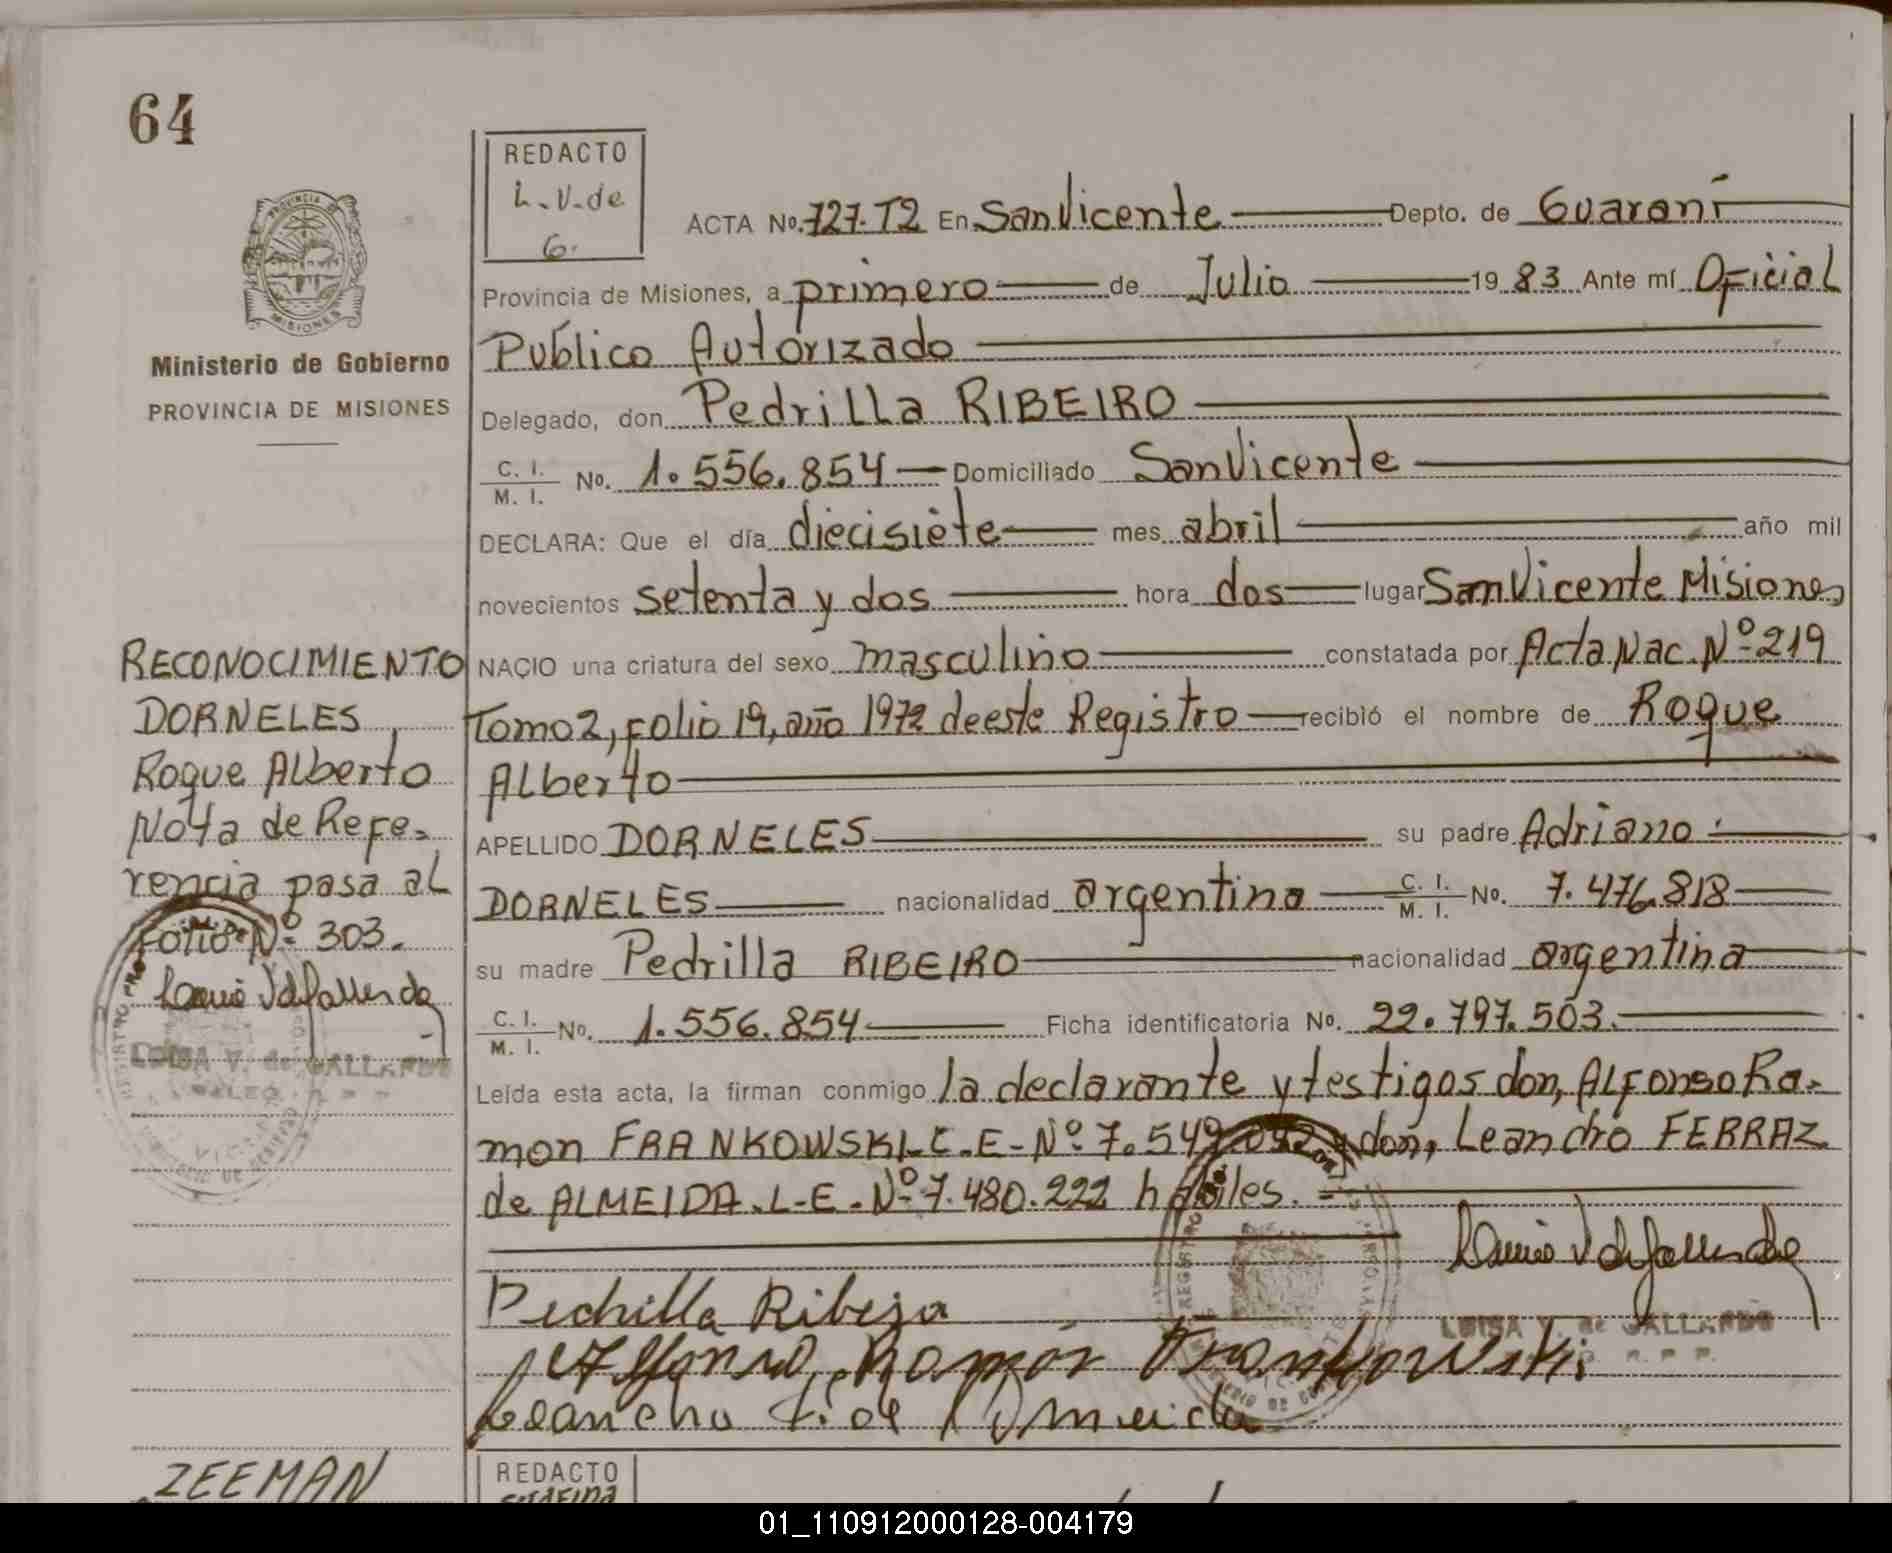 64
REDACTO
L.V. de
G.
PROVINCIA DE
MISIONES
Ministerio de Gobierno
PROVINCIA DE MISIONES
ACTA No. 727. T2 En San Vicente Depto. de Guaraní
Provincia de Misiones, a primero de Julio 19 83 Ante mí Oficial
Público Autorizado
Delegado, don Pedrilla RIBEIRO
C. I. / M. I. No. 1.556.854 Domiciliado San Vicente
DECLARA: Que el día diecisiete mes abril año mil
novecientos setenta y dos hora dos lugar San Vicente Misiones
NACIO una criatura del sexo masculino constatada por Acta Nac. Nº 219
Tomo 2, folio 19, año 1972 de este Registro recibió el nombre de Roque
Alberto
APELLIDO DORNELES su padre Adriano
DORNELES nacionalidad argentina C. I. / M. I. No. 7.476.818
su madre Pedrilla RIBEIRO nacionalidad argentina
C. I. / M. I. No. 1.556.854 Ficha identificatoria No. 22.797.503.
Leída esta acta, la firman conmigo la declarante y testigos don, Alfonso Ra-
mon FRANKOWSKI-C.E-Nº 7.549.092 y don, Leandro FERRAZ
de ALMEIDA.L-E-Nº 7.480.222 hábiles.
LUISA V. de GALLARDO
Pedrilla Ribeja
Alfonso Ramón Frankowski
Leandro F. de Almeida
RECONOCIMIENTO
DORNELES
Roque Alberto
Nota de Refe-
rencia pasa al
Folio Nº 303.
LUISA V. de GALLARDO
ZEEMAN
REDACTO
01_110912000128-004179